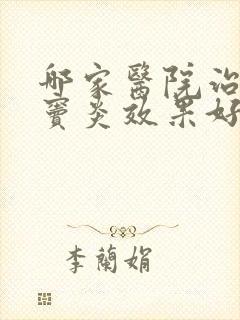 哪家醫院治
竇炎效果好
李蘭娟